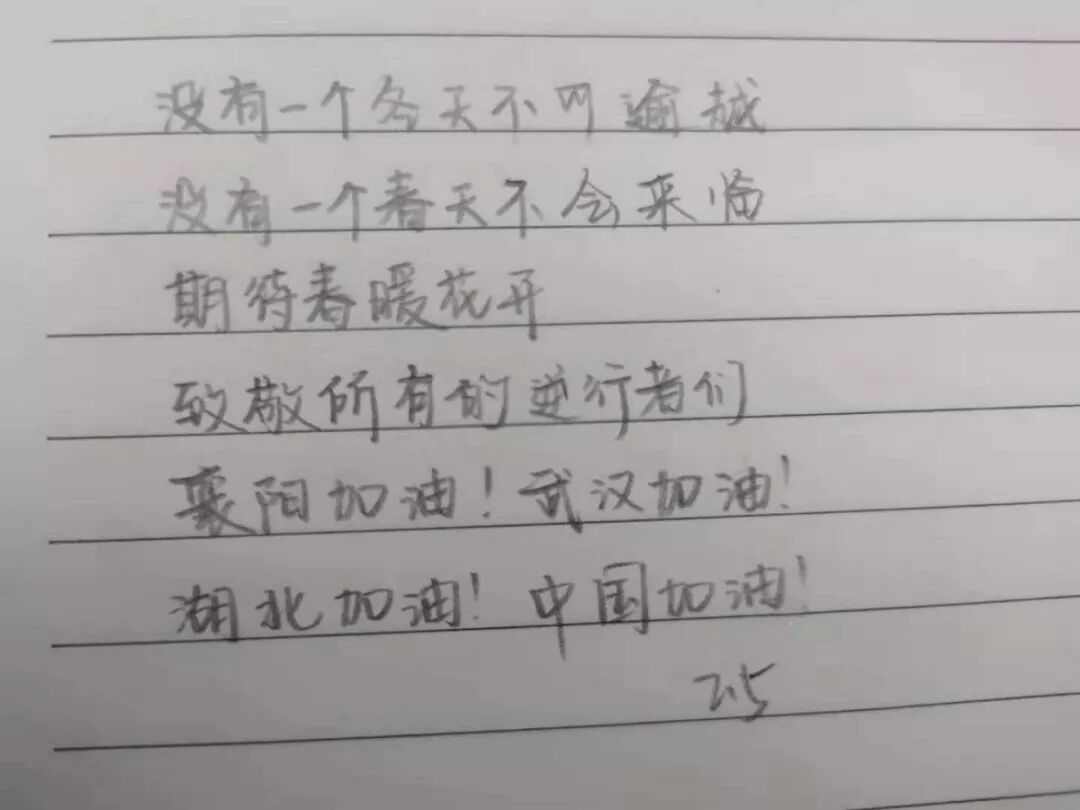 没有一个冬天不可逾越
没有一个春天不会来临
期待春暖花开
致敬所有的逆行者们
襄阳加油！武汉加油！
湖北加油！中国加油！
2.5